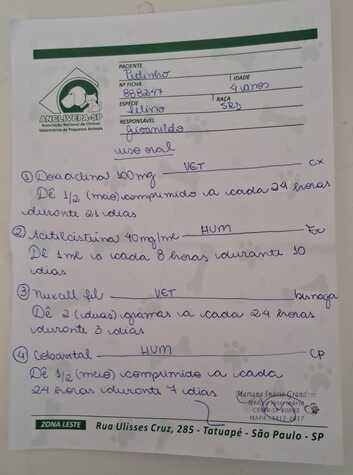 ANCLIVEPA-SP
Associação Nacional de Clínicos
Veterinários de Pequenos Animais
PACIENTE
Pedinho
Nº FICHA
888247
IDADE
4 anos
ESPÉCIE
felino
RAÇA
SRD
RESPONSÁVEL
uso oral
① Doxiciclina 100mg VET cx
Dê 1/2 (meio) comprimido a cada 24 horas
durante 21 dias
② Acetilcisteína 40mg/ml HUM
Dê 1ml a cada 8 horas durante 10
dias
③ Nuxcell fel VET bisnaga
Dê 2 (duas) gramas a cada 24 horas
durante 3 dias
④ HUM cp
Dê 1/2 (meio) comprimido a cada
24 horas durante 7 dias
ZONA LESTE
Rua Ulisses Cruz, 285 - Tatuapé - São Paulo - SP